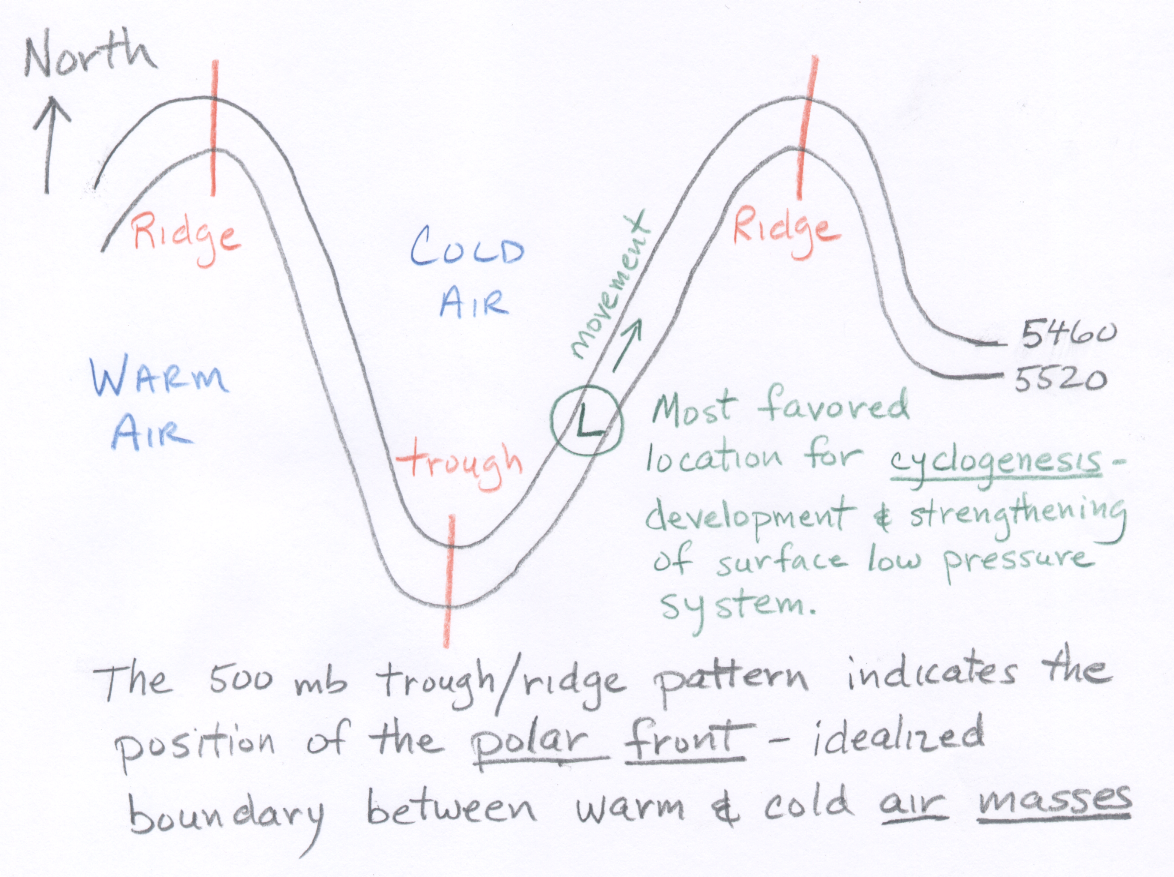 North
Ridge
COLD
AIR
movement
Ridge
5460
5520
WARM
AIR
trough
L
Most favored
location for cyclogenesis -
development & strengthening
of surface low pressure
system.
The 500 mb trough/ridge pattern indicates the
position of the polar front - idealized
boundary between warm & cold air masses